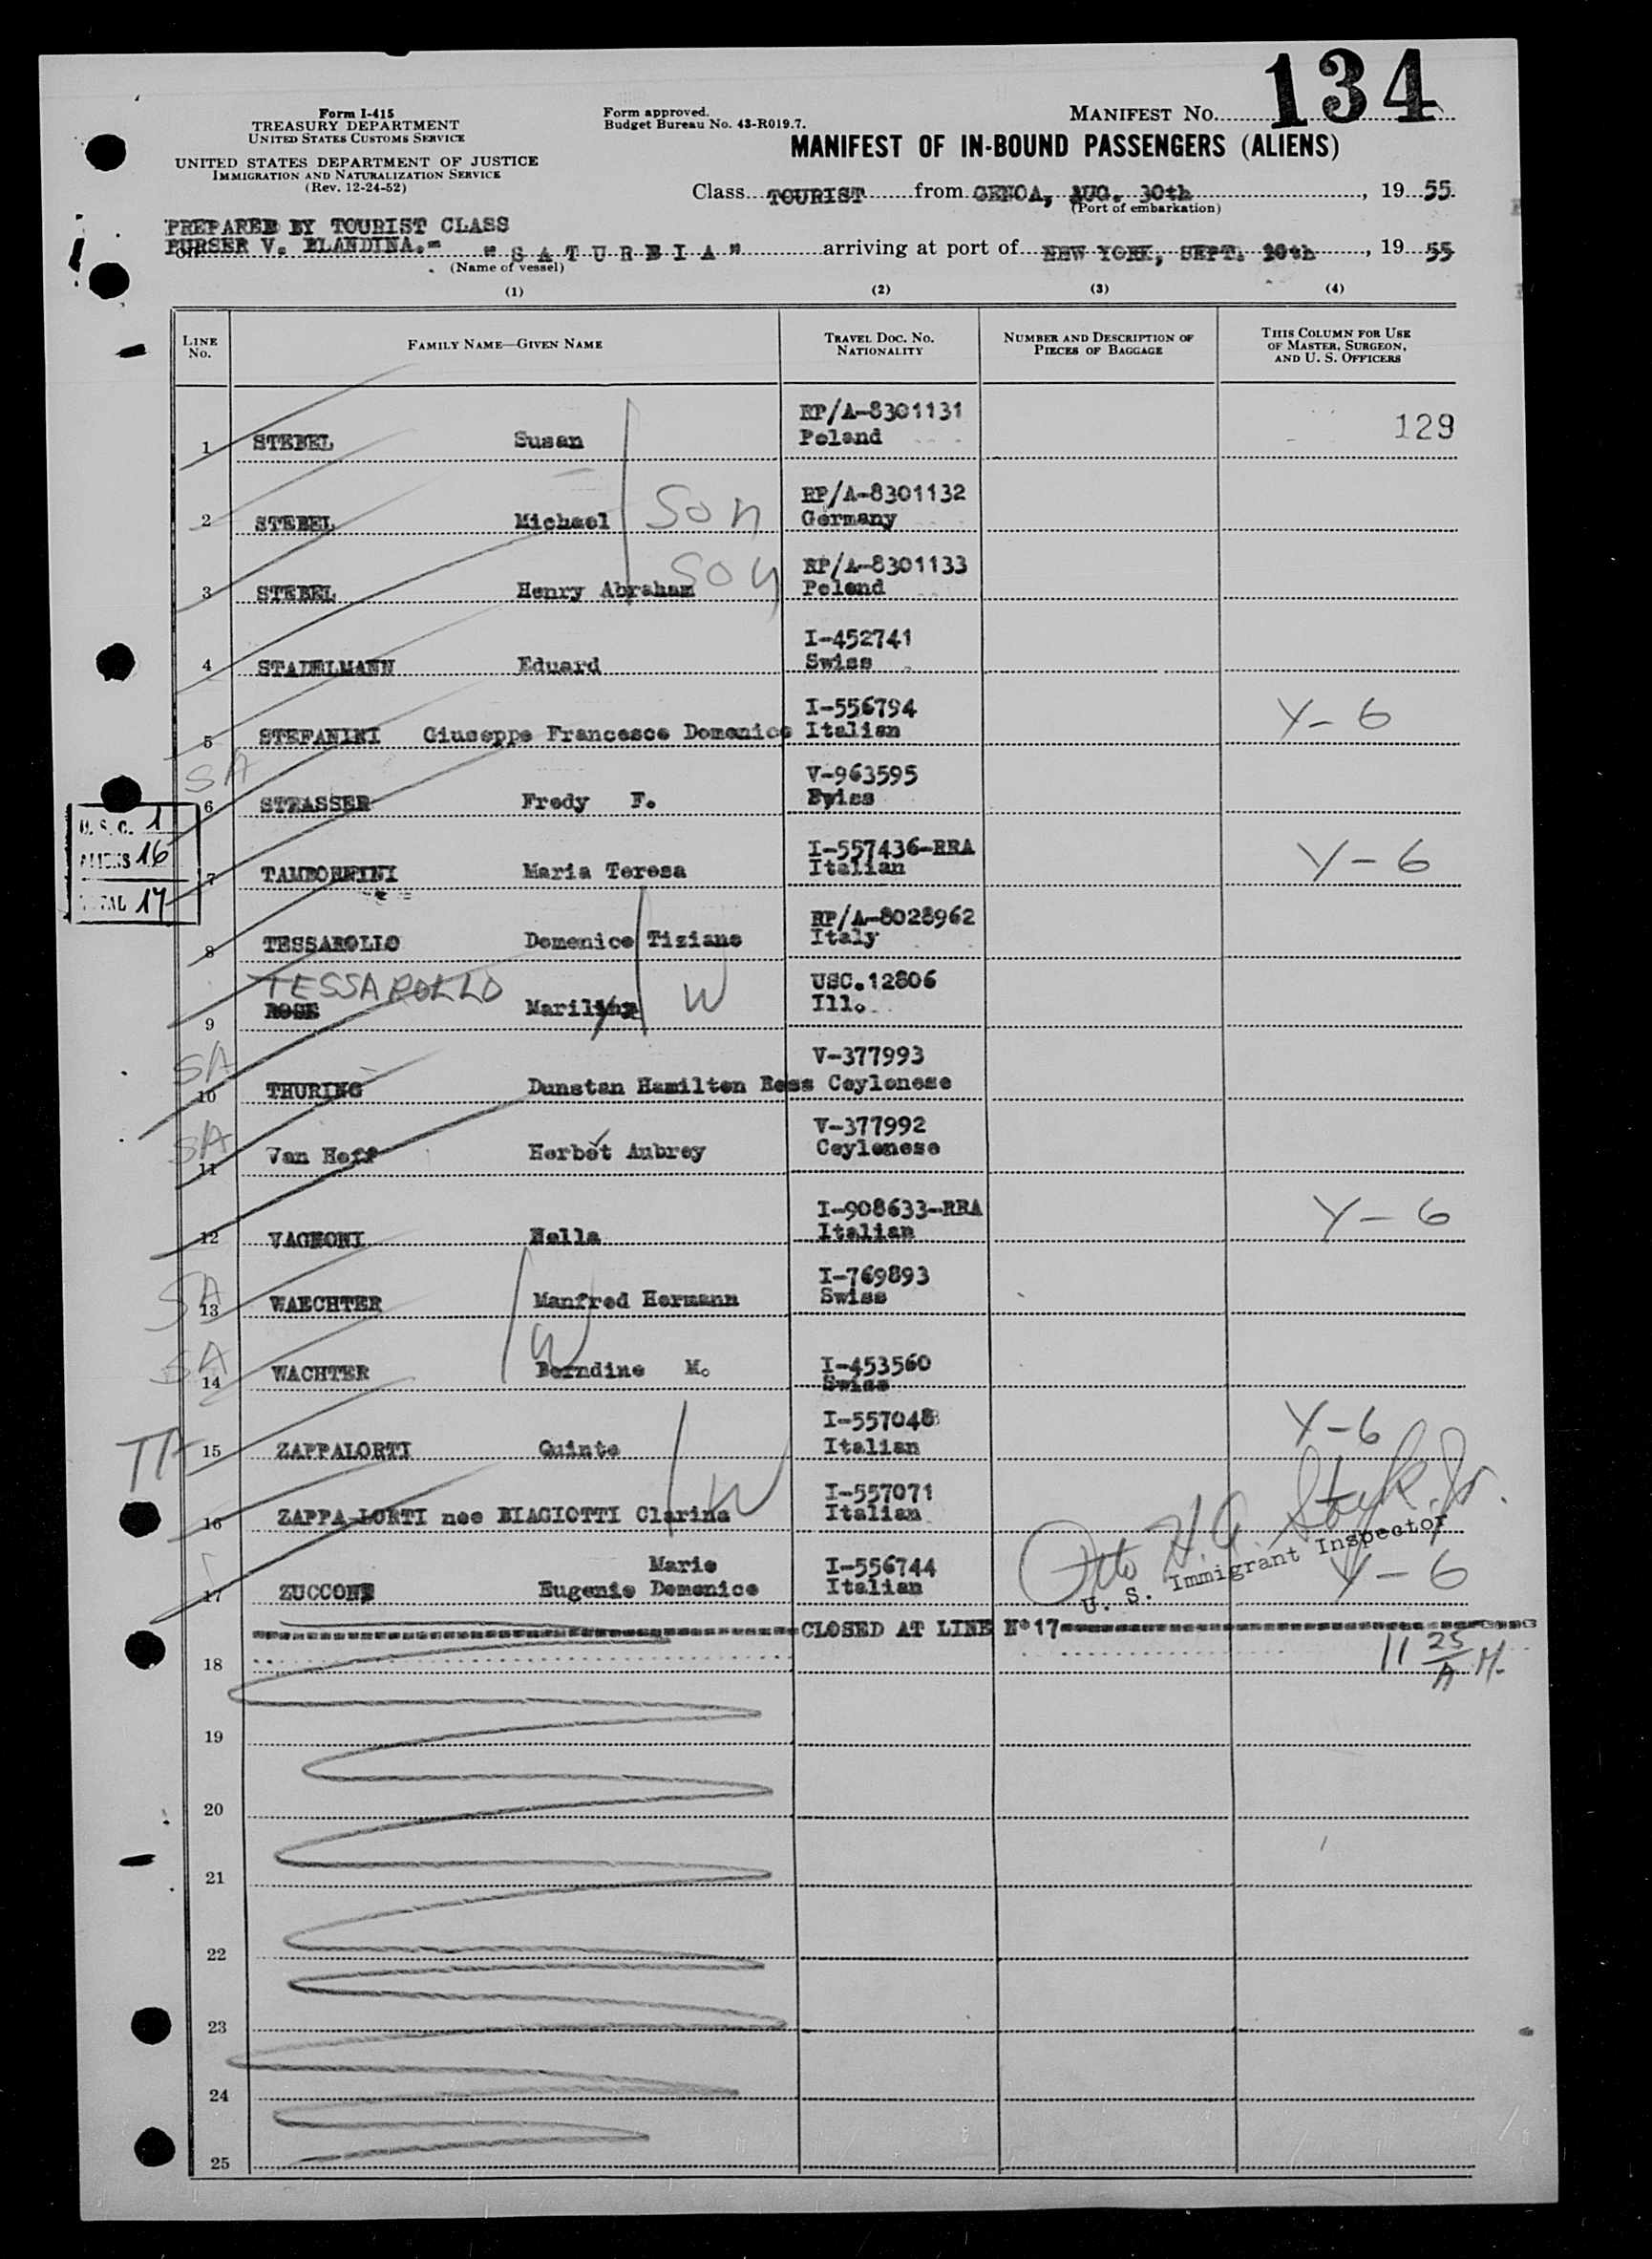 134
Form I-415
TREASURY DEPARTMENT
UNITED STATES CUSTOMS SERVICE
UNITED STATES DEPARTMENT OF JUSTICE
IMMIGRATION AND NATURALIZATION SERVICE
(Rev. 12-24-52)
Form approved.
Budget Bureau No. 43-R019.7.
MANIFEST NO.
MANIFEST OF IN-BOUND PASSENGERS (ALIENS)
Class TOURIST from GENOA, AUG. 30th, 19 55
(Port of embarkation)
PREPARED BY TOURIST CLASS
PURSER V. BLANDINA.=
"S A T U R N I A" arriving at port of NEW YORK, SEPT. 10th, 19 55
(Name of vessel)
(1) (2) (3) (4)
LINE NO. FAMILY NAME—GIVEN NAME TRAVEL DOC. NO. NATIONALITY NUMBER AND DESCRIPTION OF PIECES OF BAGGAGE THIS COLUMN FOR USE OF MASTER, SURGEON, AND U. S. OFFICERS
RP/A-8301131
1 STEBEL Susan Poland 129
RP/A-8301132
2 STEBEL Michael Son Germany
RP/A-8301133
3 STEBEL Henry Abraham Son Poland
I-452741
4 STADELMANN Eduard Swiss
I-556794
5 STEFANINI Giuseppe Francesco Domenico Italian Y-6
SA
V-963595
6 STRASSER Fredy F. Swiss
U. S. C. 1
ALIENS 16
TOTAL 17
I-557436-RRA
7 TAMBORNINI Maria Teresa Italian Y-6
RP/A-8028962
8 TESSAROLLO Domenico Tiziano Italy
TESSAROLLO
USC.12806
9 ROSE Marilyn W Ill.
SA
V-377993
10 THURING Dunstan Hamilton Ross Ceylonese
SA
V-377992
11 Van Hoff Herbet Aubrey Ceylonese
I-908633-RRA
12 VAGNONI Nella Italian Y-6
SA
I-769893
13 WAECHTER Manfred Hermann Swiss
SA W
I-453560
14 WACHTER Berndine M. Swiss
I-557048
15 ZAPPALORTI Quinto Italian Y-6
I-557071
16 ZAPPA LORTI nee BIAGIOTTI Clarina W Italian
Otto H. G.
U. S. Immigrant Inspector
Marie I-556744
17 ZUCCONE Eugenio Domenico Italian Y-6
CLOSED AT LINE Nº 17
11 25 A M.
18
19
20
21
22
23
24
25